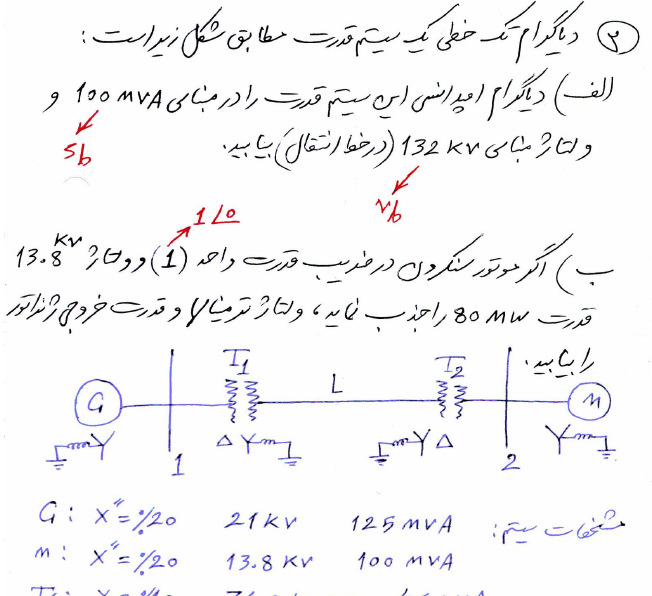 ۳) دیاگرام تک خطی یک سیستم قدرت مطابق شکل زیر است :
الف) دیاگرام امپدانسی این سیستم قدرت را در مبنای 100 MVA و
Sb
ولتاژ مبنای 132 KV (در خط انتقال) بیابید.
Vb
1∠0
ب) اگر موتور سنکرون در ضریب قدرت واحد (1) و ولتاژ 13.8 KV
قدرت 80 MW را جذب نماید، ولتاژ ترمینال و قدرت خروجی ژنراتور
را بیابید.
T1 L T2
G M
Δ Y Y Δ
1 2
مشخصات سیستم:
G: X"=%20 21 KV 125 MVA
M: X"=%20 13.8 KV 100 MVA